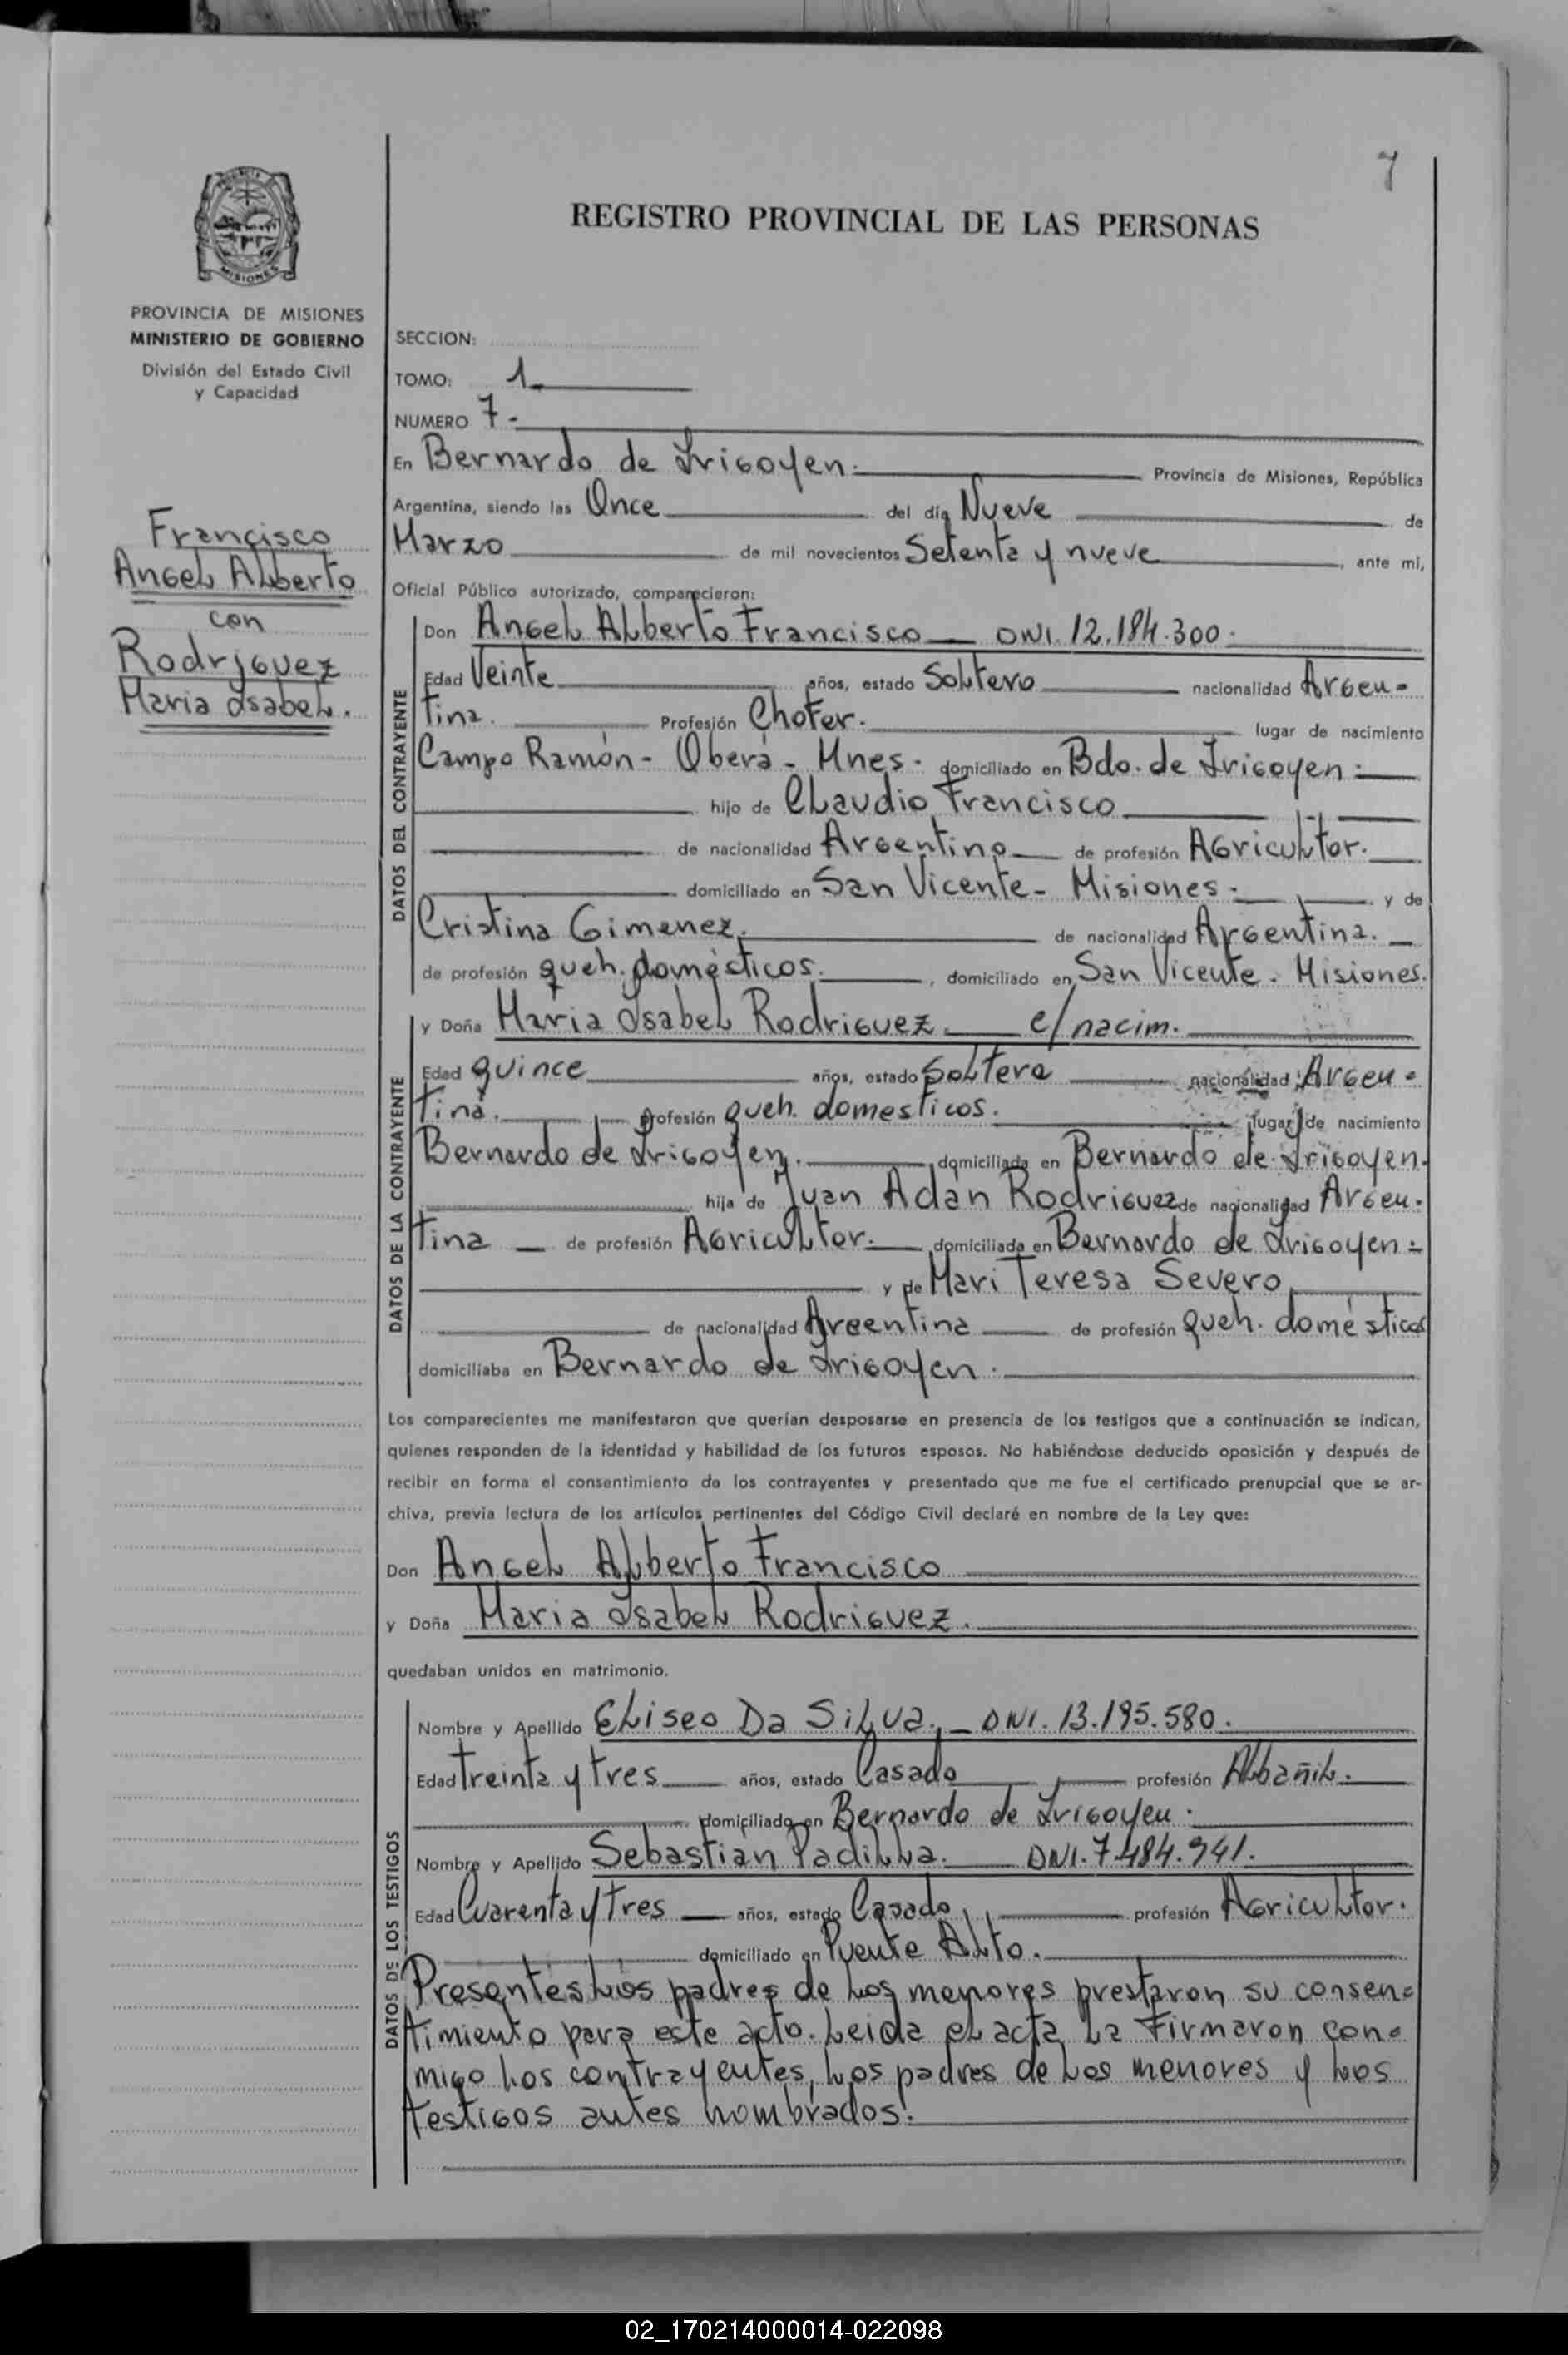 7
REGISTRO PROVINCIAL DE LAS PERSONAS
PROVINCIA DE MISIONES
MINISTERIO DE GOBIERNO
División del Estado Civil
y Capacidad
Francisco
Angel Alberto
con
Rodriguez
Maria Isabel.
SECCION:
TOMO: 1
NUMERO 7-
En Bernardo de Irigoyen. Provincia de Misiones, República
Argentina, siendo las Once del día Nueve de
Marzo de mil novecientos Setenta y nueve, ante mi,
Oficial Público autorizado, comparecieron:
DATOS DEL CONTRAYENTE
Don Angel Alberto Francisco - DNI. 12.184.300.
Edad Veinte años, estado Soltero nacionalidad Argen-
tina. Profesión Chofer. lugar de nacimiento
Campo Ramón - Oberá - Mnes. domiciliado en Bdo. de Irigoyen.
hijo de Claudio Francisco
de nacionalidad Argentino de profesión Agricultor.
domiciliado en San Vicente - Misiones. y de
Cristina Gimenez. de nacionalidad Argentina.
de profesión queh. domésticos., domiciliado en San Vicente. Misiones.
DATOS DE LA CONTRAYENTE
y Doña Maria Isabel Rodriguez. c/nacim.
Edad quince años, estado Soltera nacionalidad Argen-
tina. profesión queh. domesticos. lugar de nacimiento
Bernardo de Irigoyen. domiciliada en Bernardo de Irigoyen.
hija de Juan Adán Rodriguez de nacionalidad Argen-
tina - de profesión Agricultor. domiciliada en Bernardo de Irigoyen.
y de Mari Teresa Severo
de nacionalidad Argentina de profesión queh. domésticos
domiciliaba en Bernardo de Irigoyen.
Los comparecientes me manifestaron que querían desposarse en presencia de los testigos que a continuación se indican,
quienes responden de la identidad y habilidad de los futuros esposos. No habiéndose deducido oposición y después de
recibir en forma el consentimiento de los contrayentes y presentado que me fue el certificado prenupcial que se ar-
chiva, previa lectura de los artículos pertinentes del Código Civil declaré en nombre de la Ley que:
Don Angel Alberto Francisco
y Doña Maria Isabel Rodriguez.
quedaban unidos en matrimonio.
DATOS DE LOS TESTIGOS
Nombre y Apellido Eliseo Da Silva. - DNI. 13.195.580.
Edad treinta y tres años, estado Casado profesión Albañil.
domiciliado en Bernardo de Irigoyen.
Nombre y Apellido Sebastián Padilla. DNI. 7.484.941.
Edad Cuarenta y tres años, estado Casado profesión Agricultor.
domiciliado en Puente Alto.
Presentes los padres de los menores prestaron su consen-
timiento para este acto. Leida el acta la firmaron con-
migo los contrayentes, los padres de los menores y los
testigos antes nombrados.
02_170214000014-022098